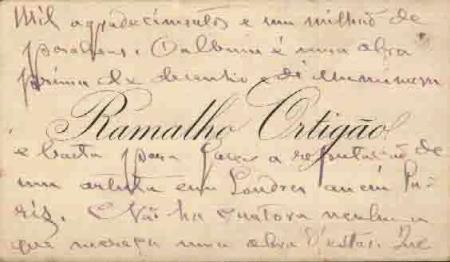 Mil agradecimentos e um milhão de
parabens. O album é uma obra
prima de desenho e de
Ramalho Ortigão
e basta para fazer a reputação de
um artista em Londres ou em Pa-
riz. Não ha cantora nenhuma
que mereça uma obra d'estas. Que